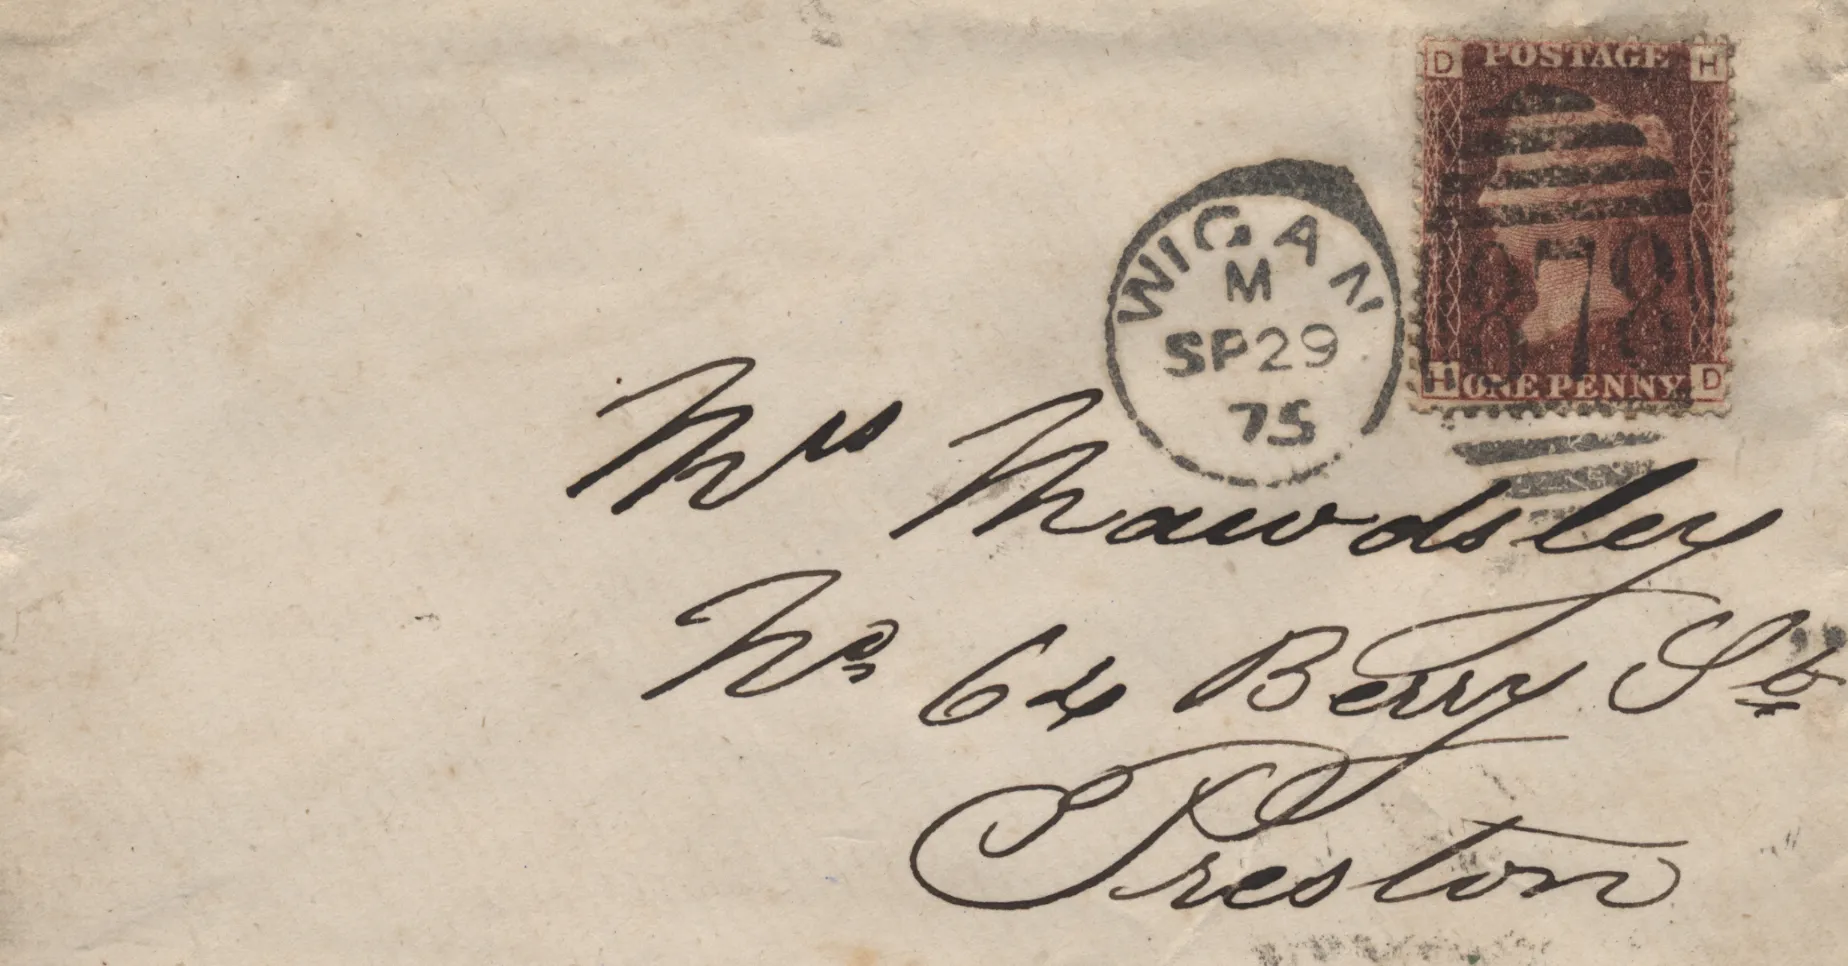 D POSTAGE H
878
H ONE PENNY D
WIGAN
M
SP 29
75
Mrs Mawdsley
No 64 Berry St
Preston